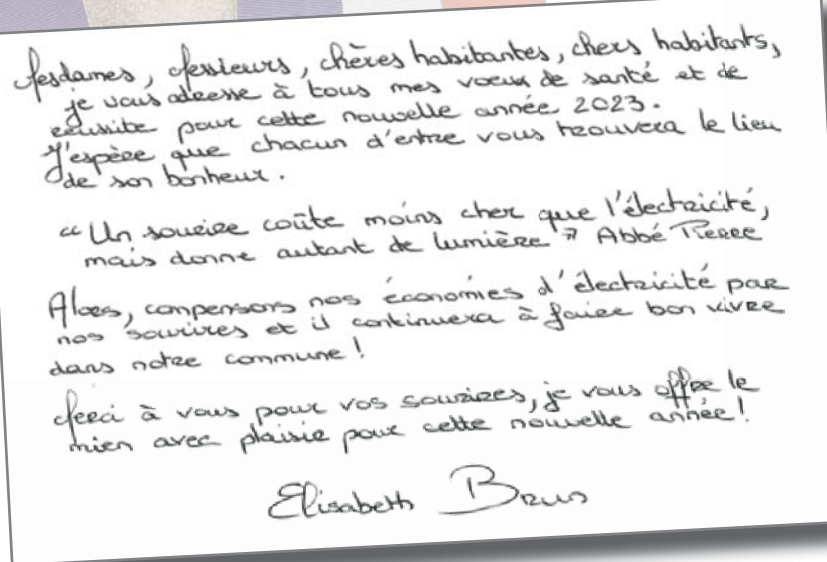 Mesdames, Messieurs, chères habitantes, chers habitants,
je vous adresse à tous mes voeux de santé et de
réussite pour cette nouvelle année 2023.
J'espère que chacun d'entre vous trouvera le lieu
de son bonheur.
"Un sourire coûte moins cher que l'électricité,
mais donne autant de lumière" Abbé Pierre
Alors, compensons nos économies d'électricité par
nos sourires et il continuera à faire bon vivre
dans notre commune !
Merci à vous pour vos sourires, je vous offre le
mien avec plaisir pour cette nouvelle année !
Elisabeth Brus